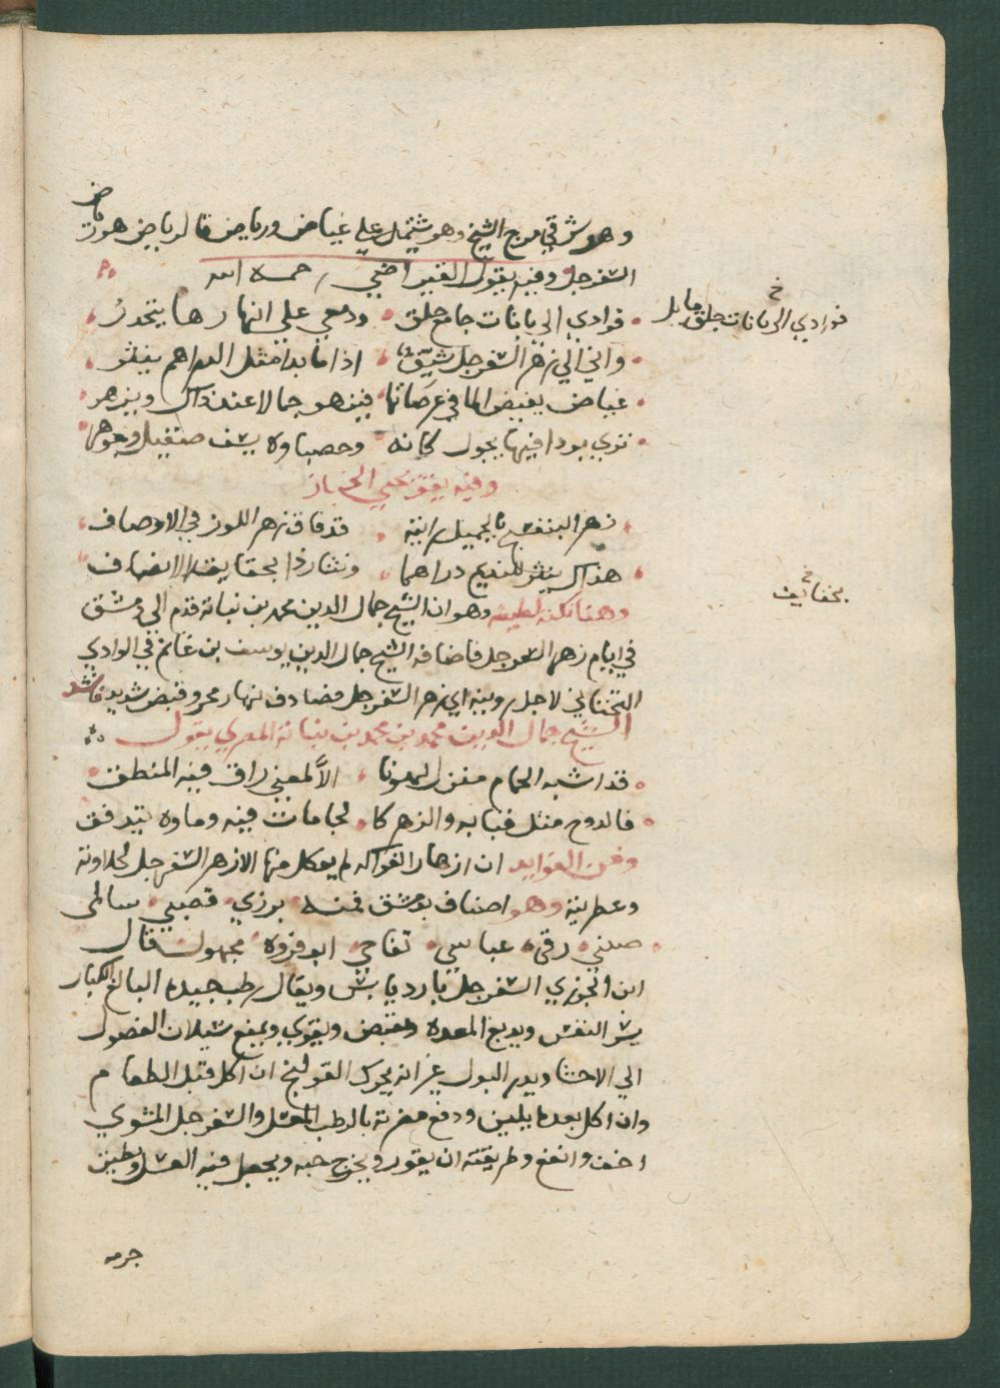 وهو شرقي مرج الشيخ وهو يشتمل علي غياض ورياض قال رياض هو رياض
السفرجل وفيه يقول القيراطي رحمه الله
فوادي الي بانات جامع جلق ودمعي علي انهارها يتحدر
واني الي زهر السفرجل شيق اذا ما بدا مثل الدراهم ينثر
غياض يفيض الما في عرصاتها فيزهو جمالا عند ذاك ويزهر
تري بردا فيها يجول كانه وحصباوه سيف صقيل وجوهر
وفيه يقول يحيي الخباز
زهر البنفسج بالجميل رايته قد فاق زهر اللوز في الاوصاف
هذاك ينثر للنديم دراهما ونثار ذا بحقايق الانصاف
وهنا نكته لطيفه وهو ان الشيخ جمال الدين محمد بن نباتة قدم الي دمشق
في ايام زهر السفرجل فاضافه الشيخ جمال الدين يوسف بن غانم في الوادي
التحتاني لاجل رويته اي زهر السفرجل فصادف نهار محر وقبض شديد فانشد
الشيخ جمال الدين محمد بن محمد بن نباتة المصري يقول
قد اشبه الحمام منزل لهونا الا لمعني راق فيه المنطق
فالدوح مثل قبابه والزهر كا لجامات فيه وماوه يتدفق
ومن الفوايد ان ازهار الفواكه لم يوكل منها الا زهر السفرجل لحلاوته
وعطريته وهو اصناف بدمشق فمنه برزي قصبي سالمي
صيني رقي عباسي تفاحي ابو فروة مجهول قال
ابن الجوزي السفرجل بارد يابس ويقال رطب جيده البالغ الكبار
يسر النفس ويدبغ المعده ويقبض ويقوي ويمنع سيلان الفضول
الي الاحشا ويدر البول غير انه يحرك القولنج ان اكل قبل الطعام
وان اكل بعده يلين ودفع مضرته بالرطب المعسل والسفرجل المشوي
اخف وانفع وطريقته ان يقور ويخرج حبه ويجعل فيه العسل ويطين
جرمه
خ
فوادي الي بانات جلق مايل
خ
بخفايف